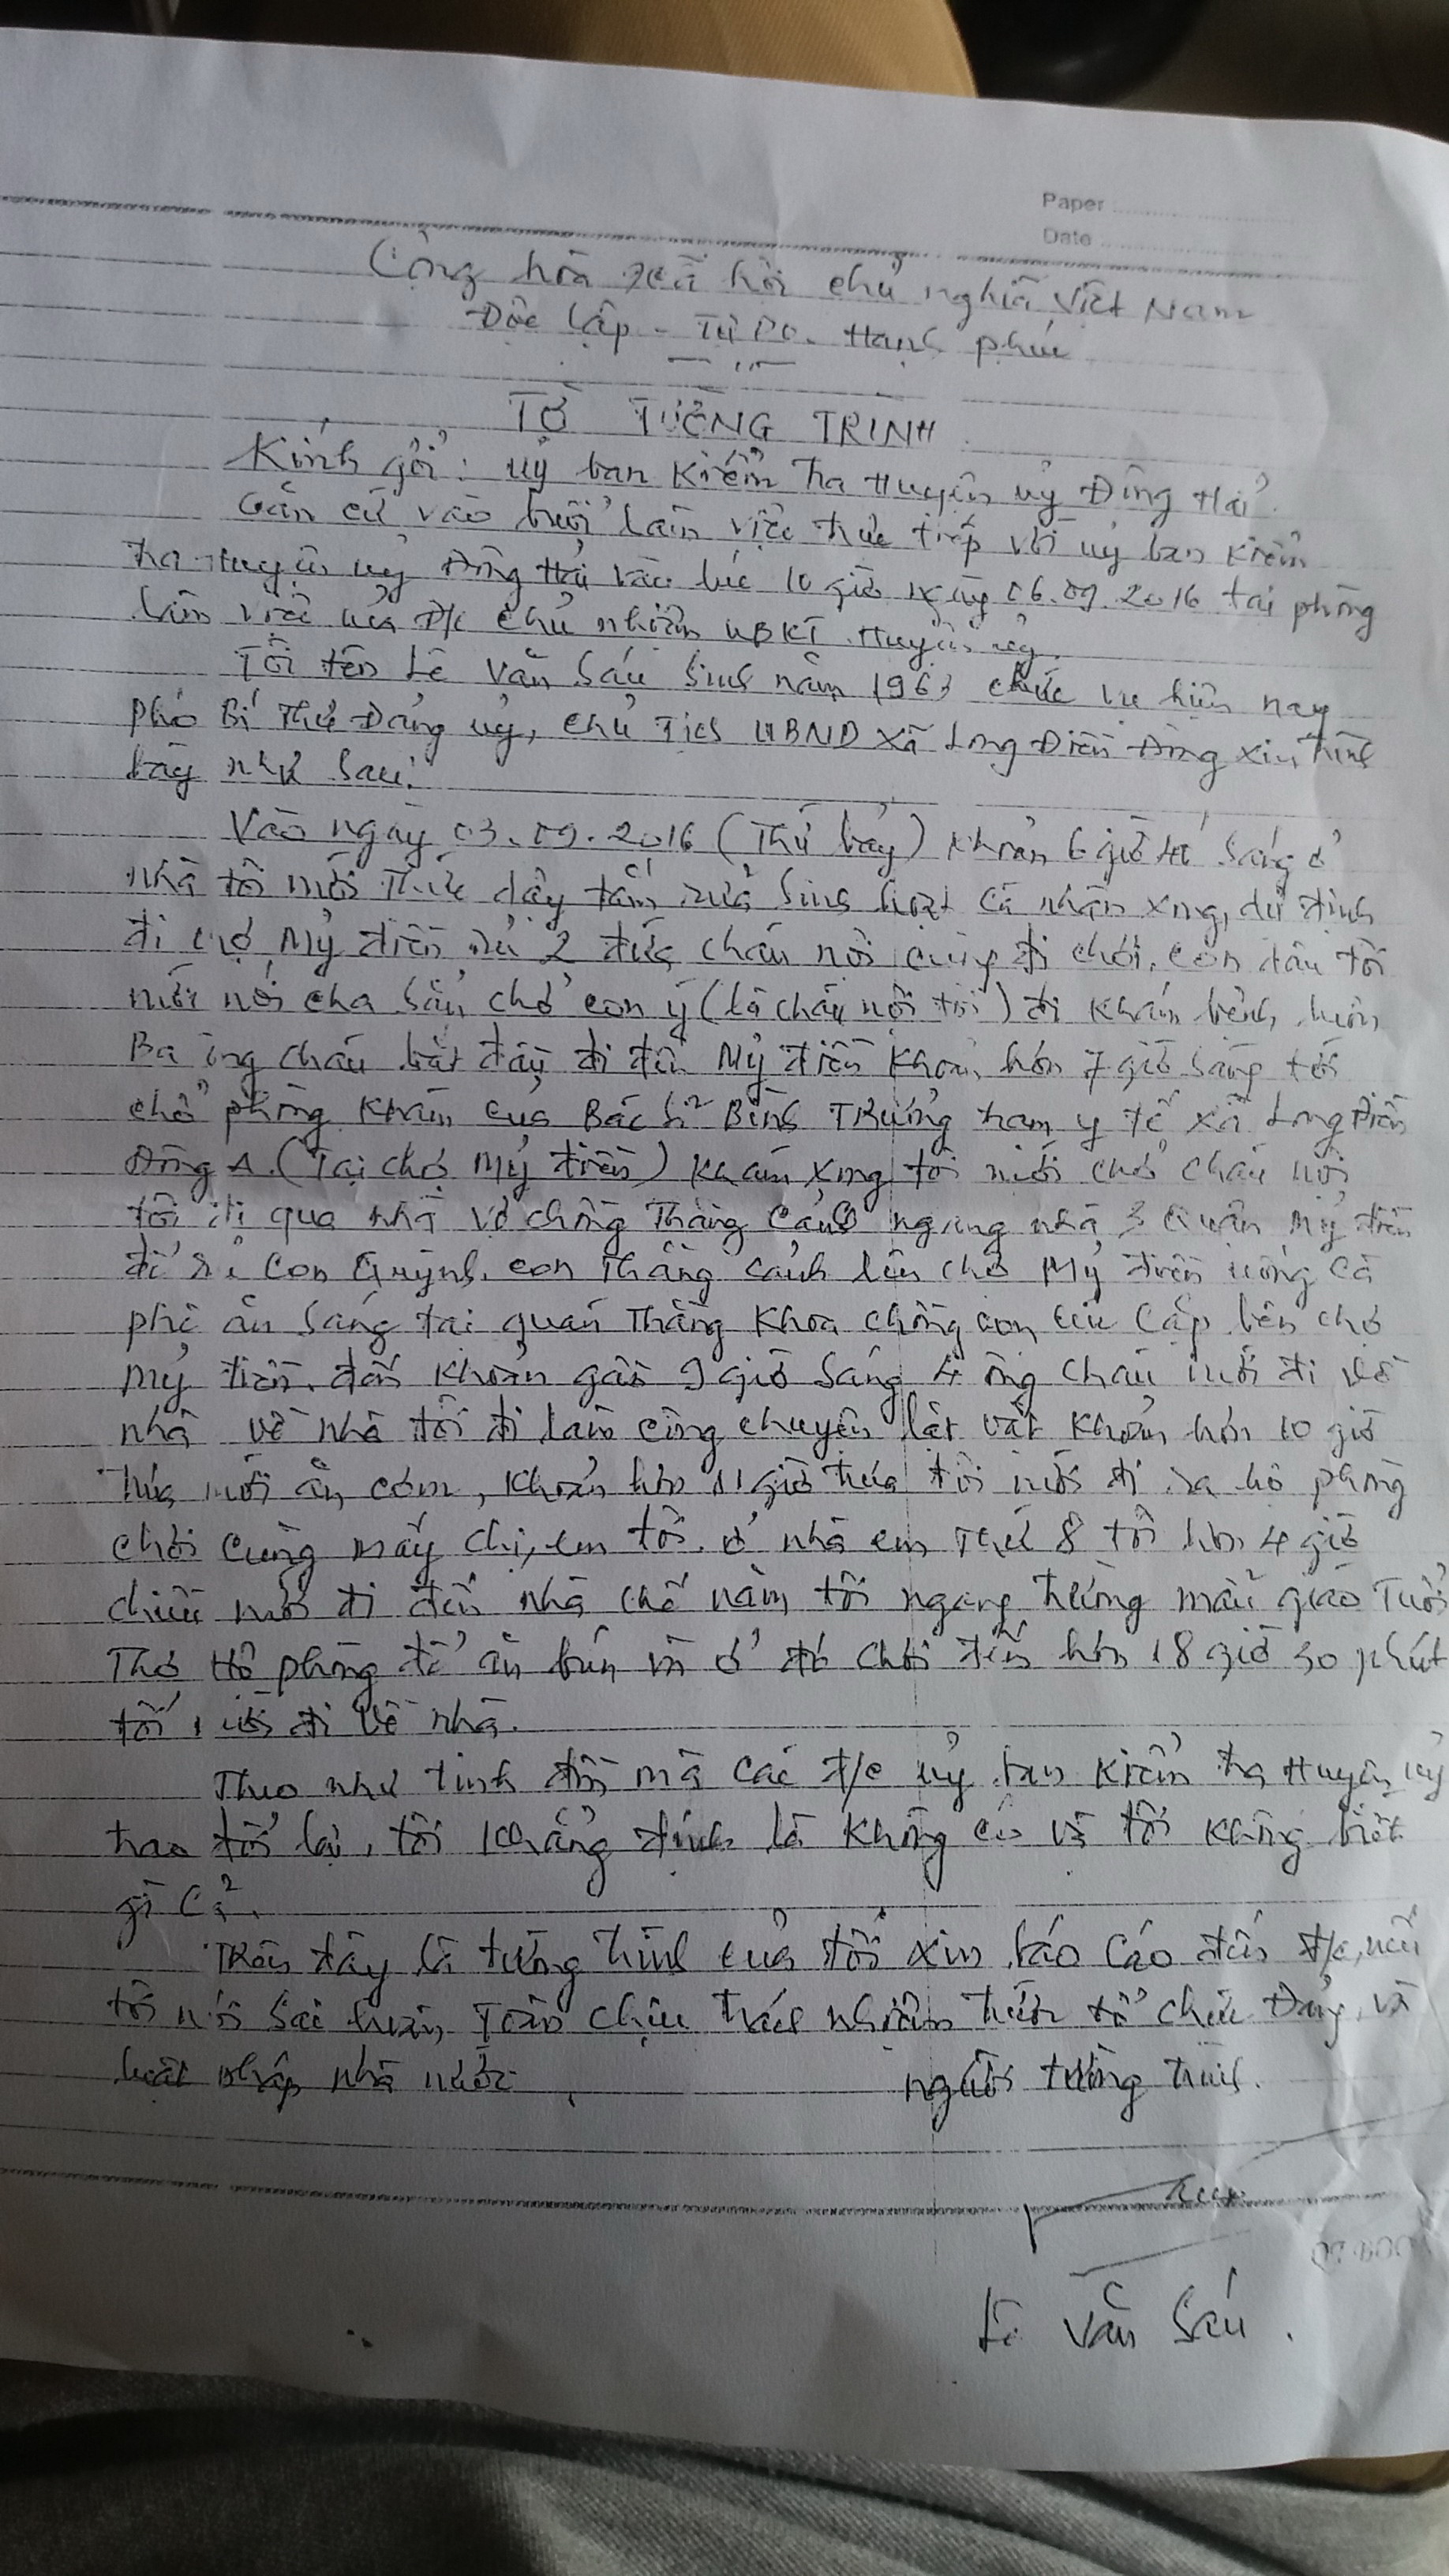 Paper
Date
Cộng hòa xã hội chủ nghĩa Việt Nam
Độc lập - Tự Do. Hạnh phúc
TỜ TƯỜNG TRÌNH
Kính gởi: uỷ ban Kiểm Tra Huyện uỷ Đông Hải.
Căn cứ vào buổi làm việc trực tiếp với uỷ ban Kiểm
tra Huyện uỷ Đông Hải vào lúc 10 giờ ngày 06.09.2016 tại phòng
làm việc của Đ/c Chủ nhiệm UBKT Huyện uỷ.
Tôi tên Lê Văn Sáu Sinh năm 1963 chức vụ hiện nay
phó Bí Thư Đảng uỷ, Chủ Tịch UBND xã Long Điền Đông xin trình
bày như sau:
Vào ngày 03.09.2016 (Thứ bảy) khoản 6 giờ sáng ở
nhà tôi mới Thức dậy tắm rửa Sinh hoạt cá nhân xong, dự định
đi chợ Mỹ điền rủ 2 đứa cháu nội cùng đi chơi, con dâu tôi
mới nói cha sẳn chở con ý (là cháu nội tôi) đi khám bệnh luôn
Ba ông cháu bắt đầu đi đến Mỹ điền khoản hơn 7 giờ sáng tới
chổ phòng khám của Bác sĩ Bình Trưởng trạm y tế xã Long Điền
Đông A. (Tại chợ Mỹ điền) khám xong tôi mới chở cháu nội
tôi đi qua nhà vợ chồng Thằng Cảnh ngang nhà 3 Quân Mỹ điền
để rủ con Quỳnh con Thằng Cảnh lên chợ Mỹ điền uống cà
phê ăn sáng tại quán Thằng Khoa chồng con Cấp bên chợ
Mỹ điền. đến khoản gần 9 giờ sáng 4 ông cháu mới đi về
nhà về nhà tôi đi làm công chuyện lặt vặt khoản hơn 10 giờ
Trưa mới ăn cơm, khoản hơn 11 giờ trưa tôi mới đi ra hộ phòng
chơi cùng mấy chị, em tôi. ở nhà em Thứ 8 tôi hơn 4 giờ
chiều mới đi đến nhà chế năm tôi ngang trường mẫu giáo Tuổi
Thơ Hộ phòng để ăn bún và ở đó chơi đến hơn 18 giờ 30 phút
tối mới đi về nhà.
Theo như tình đồn mà các đ/c uỷ ban Kiểm tra Huyện uỷ
trao đổi lại, tôi khẳng định là không có và tôi không biết
gì cả.
Trên đây là tường trình của tôi xin báo cáo đến đ/c, nếu
tôi nói sai hoàn Toàn chịu trách nhiệm trước tổ chức Đảng và
luật pháp nhà nước.
người tường trình.
Lê Văn Sáu.